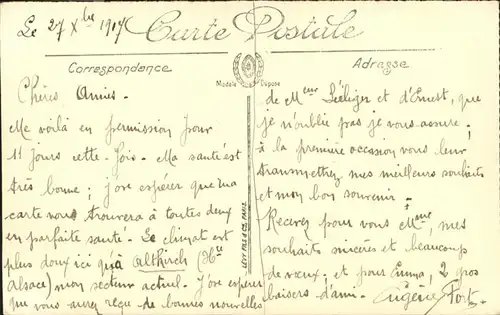 Le 27 Xbre 1917
Carte Postale
Correspondance
Modèle Déposé
Adresse
Chères Amies.
Me voilà en permission pour
11 jours cette fois. Ma santé est
très bonne ; j'ose espérer que ma
carte vous trouvera à toutes deux
en parfaite santé. Le climat est
plus doux ici qu'à Altkirch (Hte
Alsace) mon secteur actuel. J'ose espérer
que vous avez reçu de bonnes nouvelles
LEVY FILS & Cie PARIS
de Meur et d'Ernest, que
je n'oublie pas je vous assure.
à la première occasion vous leur
transmettrez mes meilleurs souhaits
et mon bon souvenir.
Recevez pour vous Mame, mes
souhaits sincères et beaucoup
de vœux; et pour Emma, 2 gros
baisers d'ami. Eugène Fort.